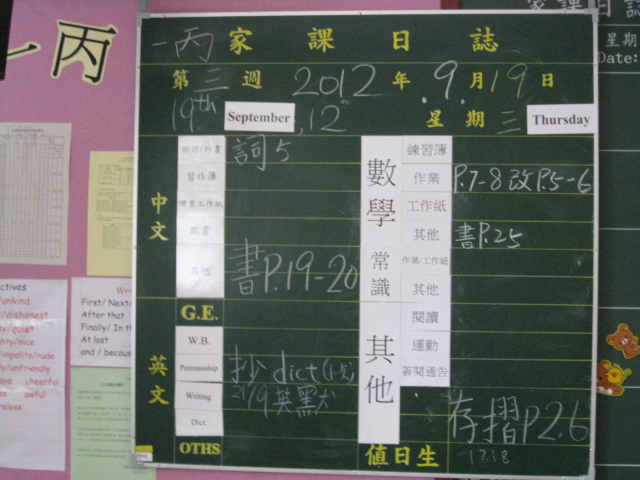 一丙
家課日誌
Date:
一丙家課日誌
第三週 2012年9月19日
19th September, 12 星期三 Thursday
中文
詞語/抄書 詞5
習作簿
書P.19-20
G.E.
英文
W.B.
Penmanship 抄dict(1次)
21/9英默
Writing
Dict
OTHS
數學
練習簿
作業 P.7-8改P.5-6
工作紙
其他 書P.25
常識
作業/工作紙
其他
其他
閱讀
運動
簽閱通告
存摺P2.6
值日生 17.18
星期
First/ Next
After that
Finally/ In th
At last
and / becaus
ctives
/unkind
/dishonest
ly/quiet
ghty/nice
impolite/rude
ly/unfriendly
cheerful
awful
reless